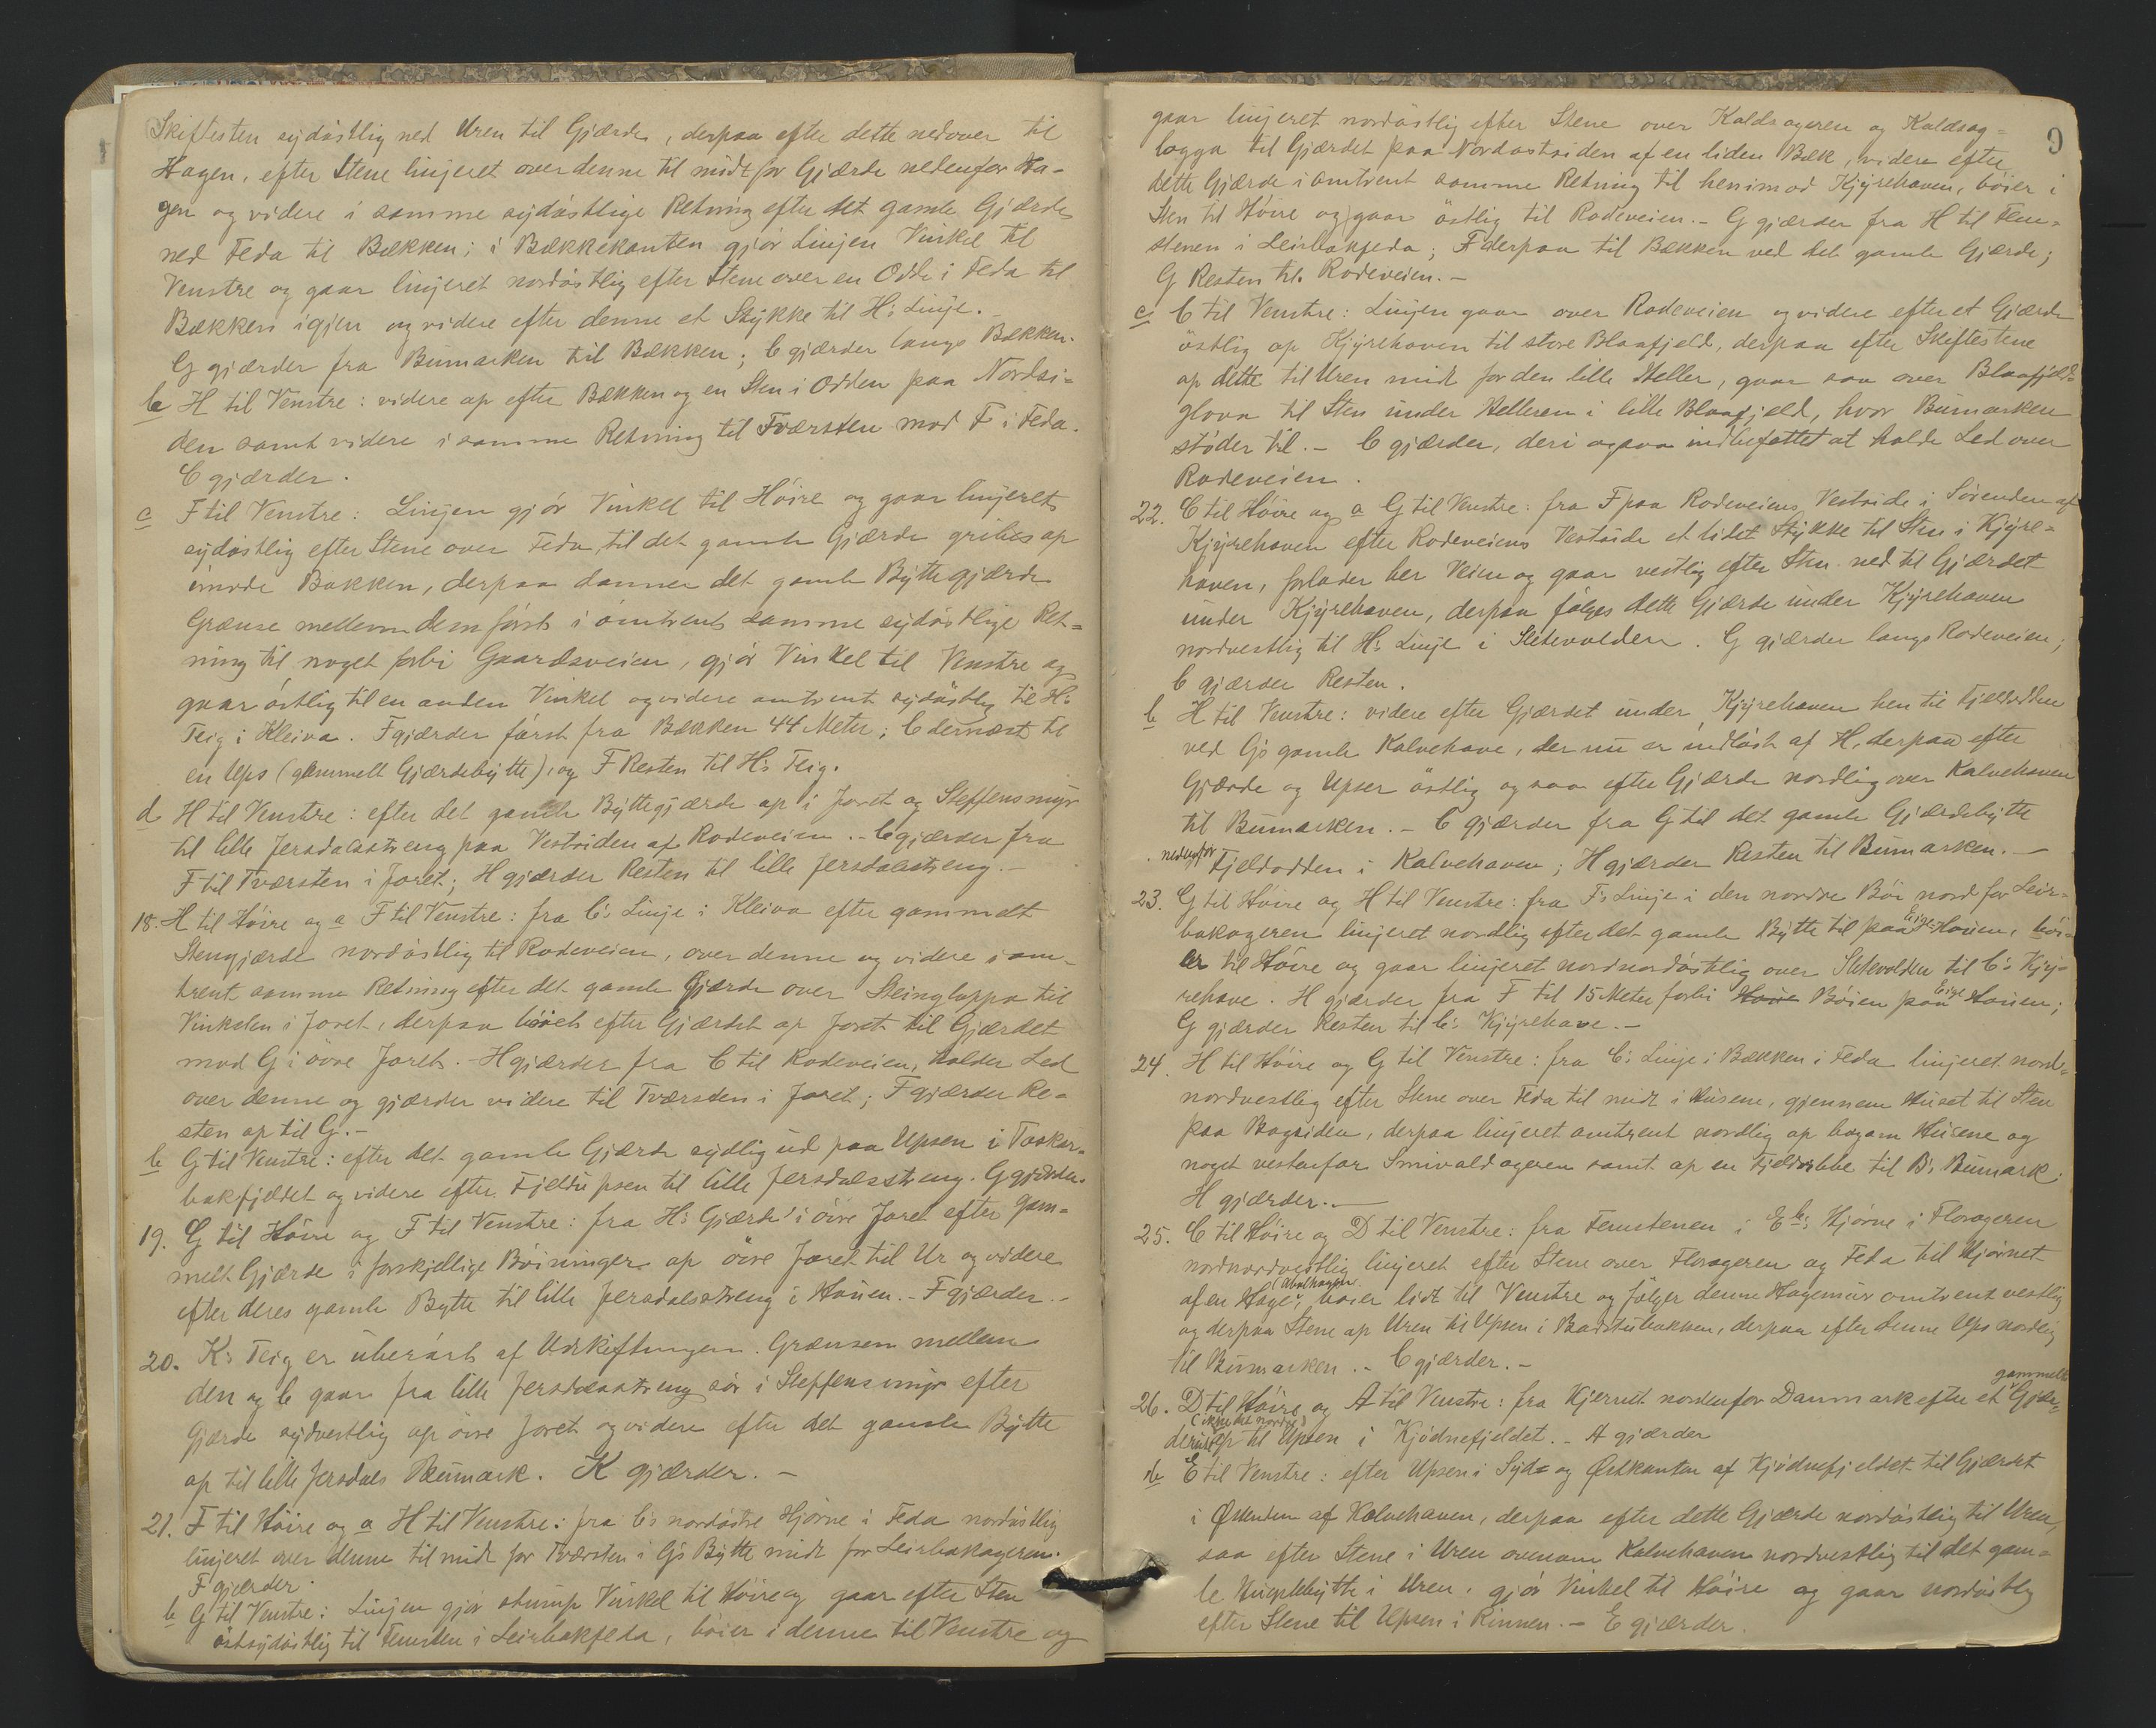 Skiftesten sydöstlig ned Uren til Gjærde, derpaa efter dette nedover til
Hagen, efter Stene linjeret over denne til midt for Gjærde nedenfor Ha-
gen og videre i samme sydöstlige Retning efter det gamle Gjærde
ned Feda til Bækken; i Bækkekanten gjör Linjen Vinkel til
Venstre og gaar linjeret nordöstlig efter Stene over en Odde i Feda til
Bækken igjen og videre efter denne et Stykke til H's Linje.
G gjærder fra Bumarken til Bækken; C gjærder langs Bækken.
b H til Venstre: videre op efter Bækken og en Sten i Odden paa Nordsi-
den samt videre i samme Retning til Tværsten mod F i Feda.
C gjærder.
c F til Venstre: Linjen gjör Vinkel til Höire og gaar linjeret
sydöstlig efter Stene over Feda, til det gamle Gjærde gribes op
imode Bakken, derpaa danner det gamle Byttegjærde
Grænse mellem dem först i omtrent samme sydöstlige Ret=
ning til noget forbi Gaardsveien, gjör Vinkel til Venstre og
gaar östlig til en anden Vinkel og videre omtrent sydöstlig til H's
Teig i Kleiva. F gjærder först fra Bækken 44 Meter; C dernæst til
en Ups (gammelt Gjærdebytte), og F Resten til H's Teig.
d H til Venstre: efter det gamle Byttegjærde op i Joret og Steffensmyr
til lille Jersdalsstreng paa Vestsiden af Rodeveien. - C gjærder fra
F til Tværsten i Joret; H gjærder Resten til lille Jersdalsstreng. -
18. H til Höire og a F til Venstre: fra C's Linje i Kleiva efter gammelt
Stengjærde nordöstlig til Rodeveien, over denne og videre i om-
trent samme Retning efter det gamle Gjærde over Steingloppa til
Vinkelen i Joret, derpaa efter Gjærdet op Joret til Gjærdet
mod G i övre Joret. - H gjærder fra C til Rodeveien, holder Led
over denne og gjærder videre til Tværsten i Joret; F gjærder Re=
sten op til G. -
b G til Venstre: efter det gamle Gjærde sydlig ud paa Upsen i
bakfjeldet og videre efter Fjeldupsen til lille Jersdalsstreng. G gjærder.
19. G til Höire og F til Venstre: fra H's Gjærde i övre Joret efter gam=
melt Gjærde i forskjellige Böininger op övre Joret til Ur og videre
efter deres gamle Bytte til lille Jersdalsstreng i Houen. - F gjærder. -
20. K's Teig er uberört af Udskiftningen. Grænsen mellem
den og C gaar fra lille Jersdalsstreng sör i Steffensmyr efter
Gjærde sydvestlig op övre Joret og videre efter det gamle Bytte
op til lille Jersdals Bumark. K gjærder. -
21. F til Höire og a H til Venstre: fra C's nordöstre Hjörne i Feda nordöstlig
linjeret over denne til midt for Tværsten i G's Bytte midt for Leirbakageren.
F gjærder.
b G til Venstre: Linjen gjör stump Vinkel til Höire og gaar efter Sten
östsydöstlig til Femsten i Leirbakfeda, böier i denne til Venstre og
9
gaar linjeret nordöstlig efter Stene over Koldsageren og Koldsag=
logga til Gjærdet paa Nordostsiden af en liden Bæk, videre efter
dette Gjærde i omtrent samme Retning til henimod Kjyrehaven, böier i
Sten til Höire og gaar östlig til Rodeveien. - G gjærder fra H til Fem-
stenen i Leirbakfeda; F derpaa til Bækken ved det gamle Gjærde;
G Resten til Rodeveien. -
c C til Venstre: Linjen gaar over Rodeveien og videre efter et Gjærde
östlig op Kjyrehaven til store Blaafjeld, derpaa efter Skiftestene
op dette til Uren midt for den lille Heller, gaar saa over Blaafjeld=
glova til Sten under Helleren i lille Blaafjeld, hvor Bumarken
stöder til. - C gjærder, deri ogsaa indbefattet at holde Led over
Rodeveien.
22. C til Höire og a G til Venstre: fra F paa Rodeveiens Vestside i Sörenden af
Kjyrehaven efter Rodeveiens Vestside et lidet Stykke til Sten i Kjyre=
haven, forlader her Veien og gaar vestlig efter Sten ned til Gjærdet
under Kjyrehaven, derpaa fölges dette Gjærde under Kjyrehaven
nordvestlig til H's Linje i Slettevolden. G gjærder langs Rodeveien;
C gjærder Resten.
b H til Venstre: videre efter Gjærdet under Kjyrehaven hen til Fjeldodden
ved G's gamle Kalvehave, der nu er indlöst af H, derpaa efter
Gjærde og Upser östlig og saa efter Gjærde nordlig over Kalvehaven
til Bumarken. - C gjærder fra G til det gamle Gjærdebytte
nedenfor Fjeldodden i Kalvehaven; H gjærder Resten til Bumarken. -
23. G til Höire og H til Venstre: fra F's Linje i den nordre Böi nord for Leir=
bakageren linjeret nordlig efter det gamle Bytte til paa Eige Houen, böi=
er til Höire og gaar linjeret nordnordöstlig over Slettevolden til C's Kjy-
rehave. H gjærder fra F til 15 Meter forbi Böien paa Eige Houen;
G gjærder Resten til C's Kjyrehave. -
24. H til Höire og G til Venstre: fra C's Linje i Bækken i Feda linjeret nord=
nordvestlig efter Stene over Feda til midt i Husene, gjennem Huset til Sten
paa Bagsiden, derpaa linjeret omtrent nordlig op bagom Husene og
noget vestenfor Smivoldageren samt op en til B's Bumark.
H gjærder. -
25. C til Höire og D til Venstre: fra Femstenen i Eb's Hjörne i Floragerен
nordnordvestlig linjeret efter Stene over Florageren og Feda til Hjörnet
af en Hage (Abelhagen), böier lidt til Venstre og fölger denne Hagemur omtrent vestlig
og derpaa Stene op Uren til Upsen i Badstubakken, derpaa efter denne Ups nordlig
til Bumarken. - C gjærder. -
26. D til Höire og A til Venstre: fra Hjørnet nordenfor Danmark efter et gammelt Gjær=
(ikke det nordre) op til Upsen i Kjödnefjeldet. - A gjærder
b E til Venstre: efter Upsen i Syd= og Østkanten af Kjödnefjeldet til Gjærdet
i Østenden af Kalvehaven, derpaa efter dette Gjærde nordöstlig til Uren,
saa efter Stene i Uren ovenom Kalvehaven nordvestlig til det gam=
le i Uren, gjör Vinkel til Höire og gaar nordöstlig
efter Stene til Upsen i Rinnen. - E gjærder.